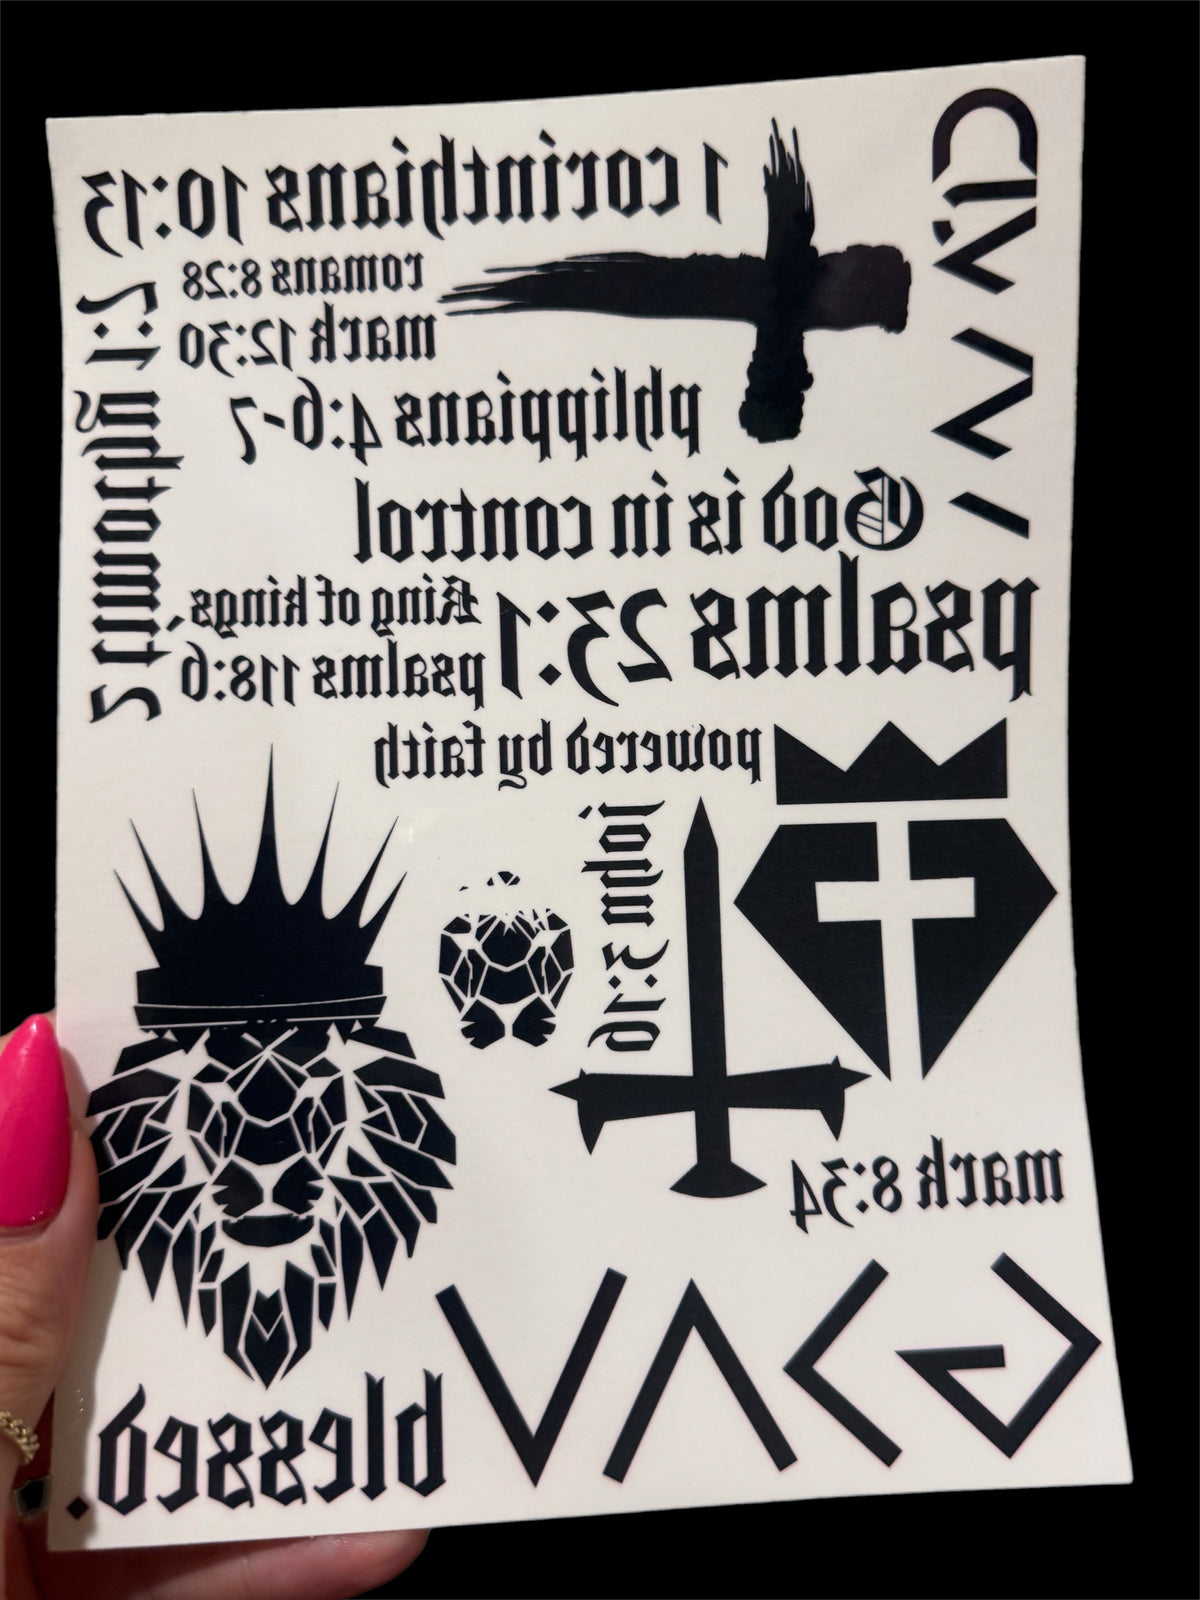 1 corinthians 10:13
romans 8:28
mark 12:30
phlippians 4:6-7
2 timothy 1:7
God is in control
psalms 23:1
King of kings,
psalms 118:6
powered by faith
john 3:16
mark 8:34
G > ∧ ∨
blessed.